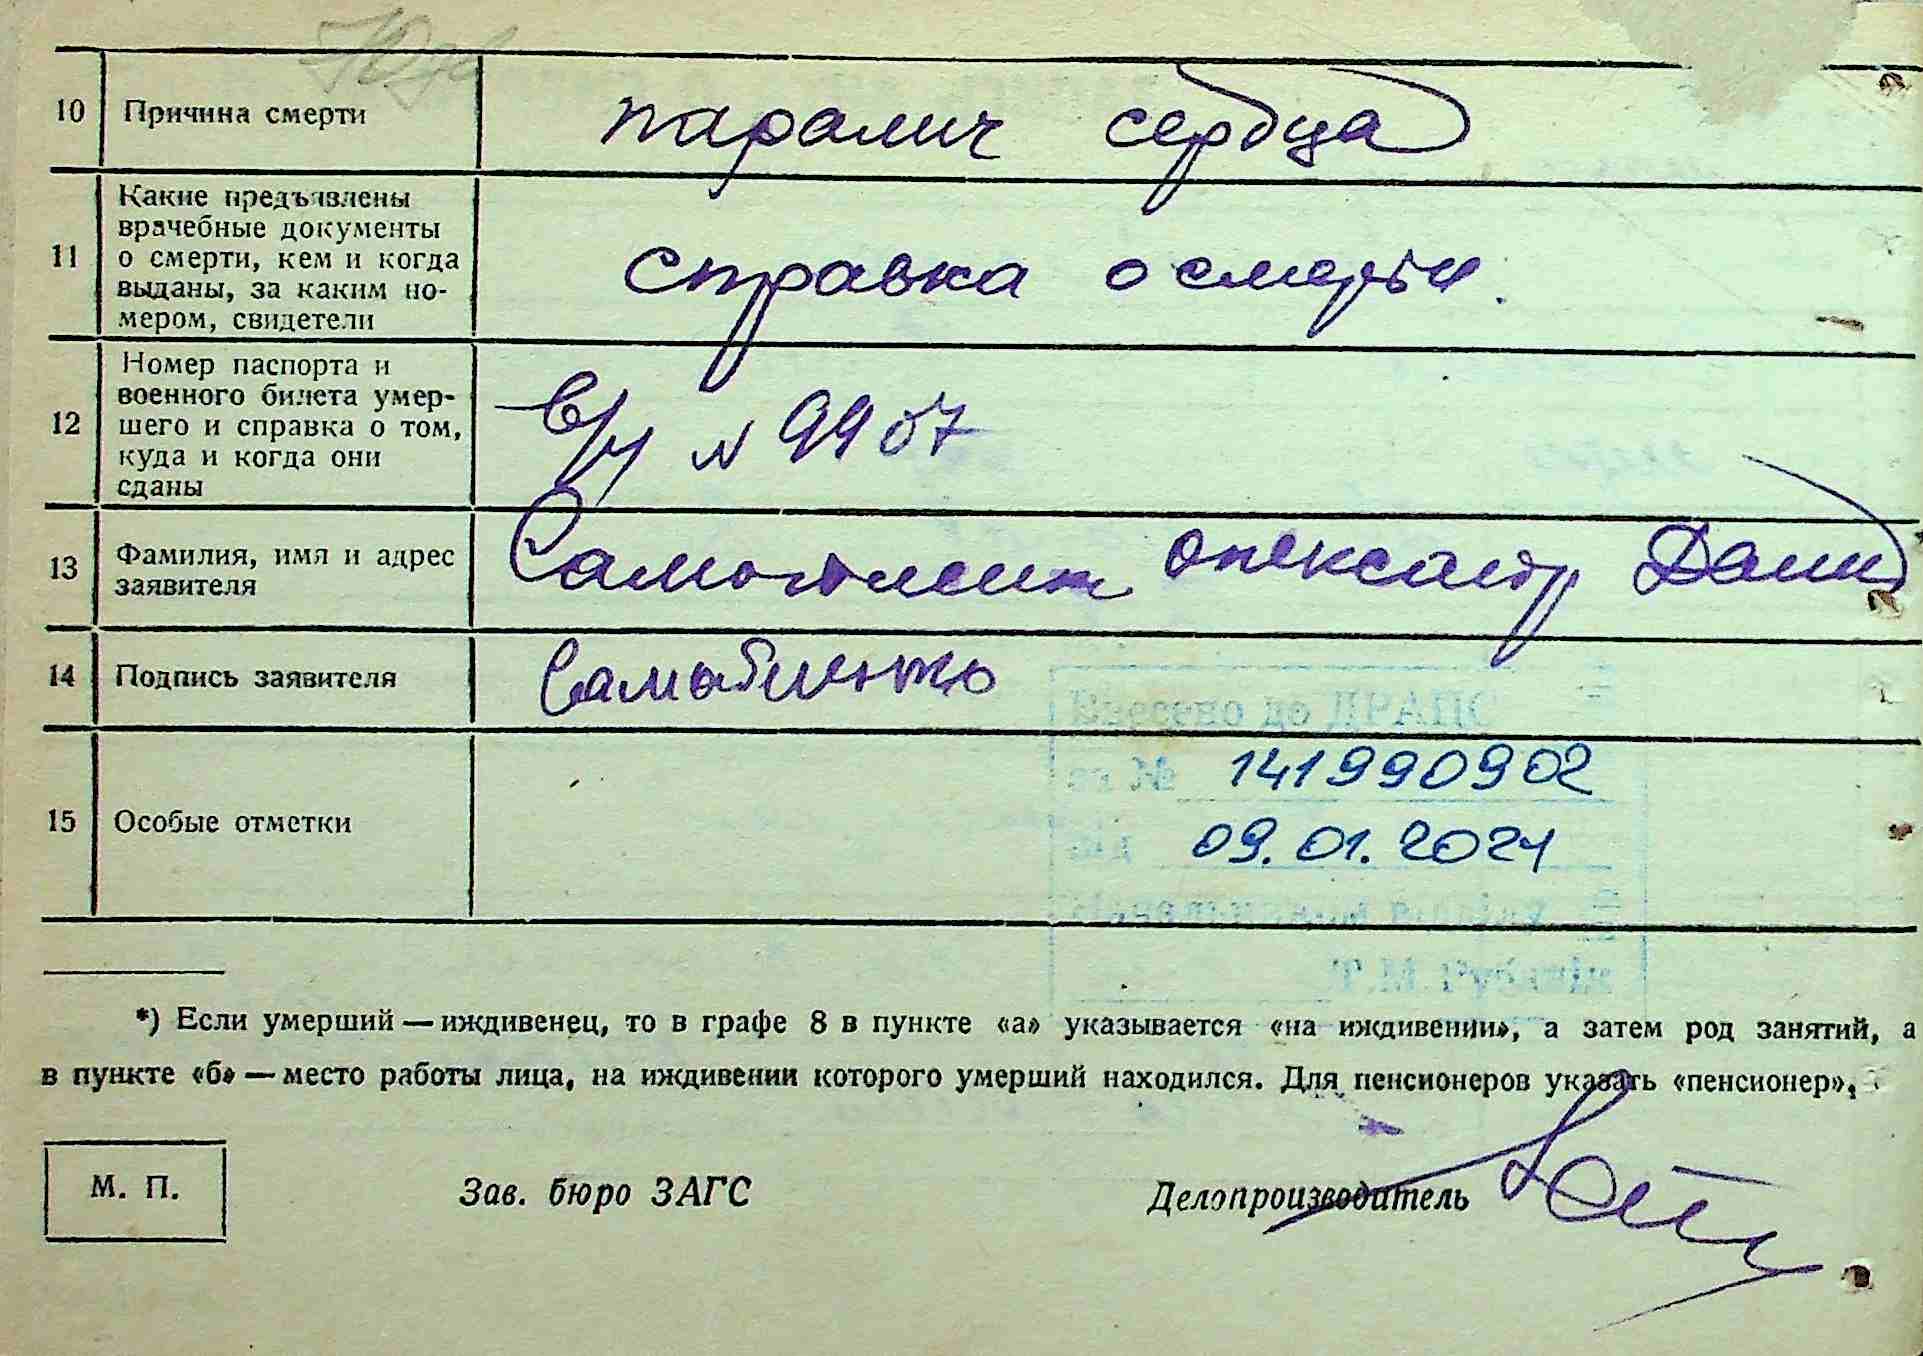 10 Причина смерти паралич сердца
11 Какие предъявлены
врачебные документы
о смерти, кем и когда
выданы, за каким но-
мером, свидетели
справка о смерти.
12 Номер паспорта и
военного билета умер-
шего и справка о том,
куда и когда они
сданы
N 9907
13 Фамилия, имя и адрес
заявителя
14 Подпись заявителя
Внесено до ДРАЦС
№ 141990902
15 Особые отметки
від 09.01.2021
*) Если умерший — иждивенец, то в графе 8 в пункте «а» указывается «на иждивении», а затем род занятий, а
в пункте «б» — место работы лица, на иждивении которого умерший находился. Для пенсионеров указать «пенсионер»,
М. П. Зав. бюро ЗАГС Делопроизводитель